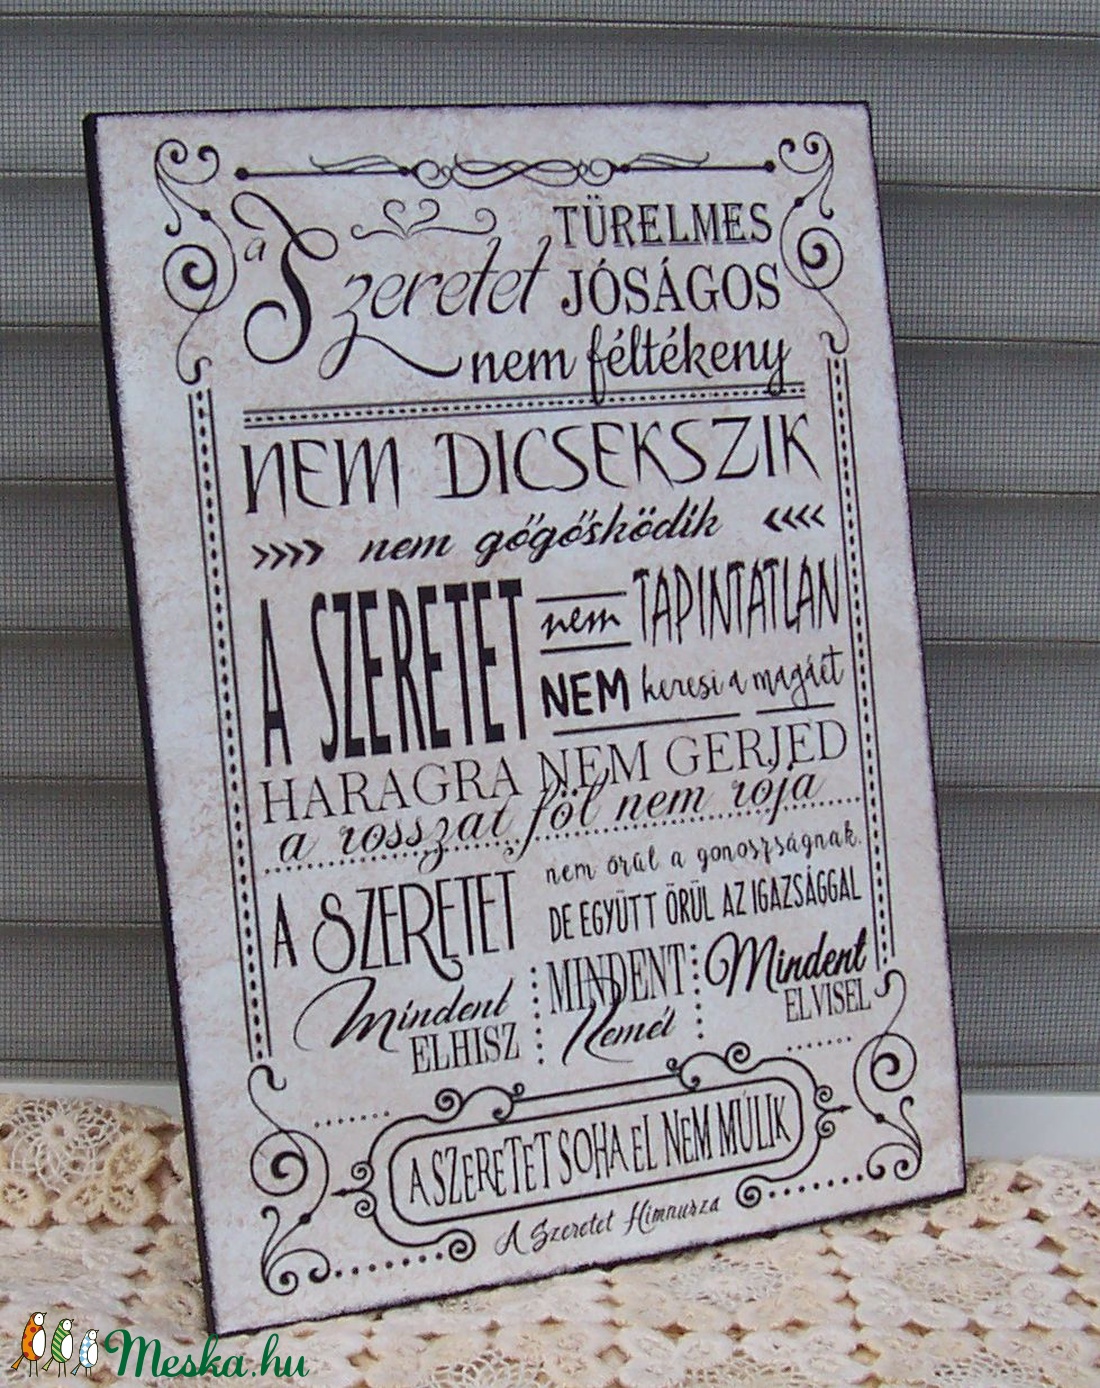 a Szeretet
TÜRELMES
JÓSÁGOS
nem féltékeny
NEM DICSEKSZIK
»» nem gőgösködik ««
A SZERETET
nem TAPINTATLAN
NEM keresi a magáét
HARAGRA NEM GERJED
a rosszat föl nem rója
A SZERETET
nem örül a gonoszságnak.
DE EGYÜTT ÖRÜL AZ IGAZSÁGGAL
Mindent ELHISZ
MINDENT Remél
Mindent ELVISEL
A SZERETET SOHA EL NEM MÚLIK
A Szeretet Himnusza
Meska.hu